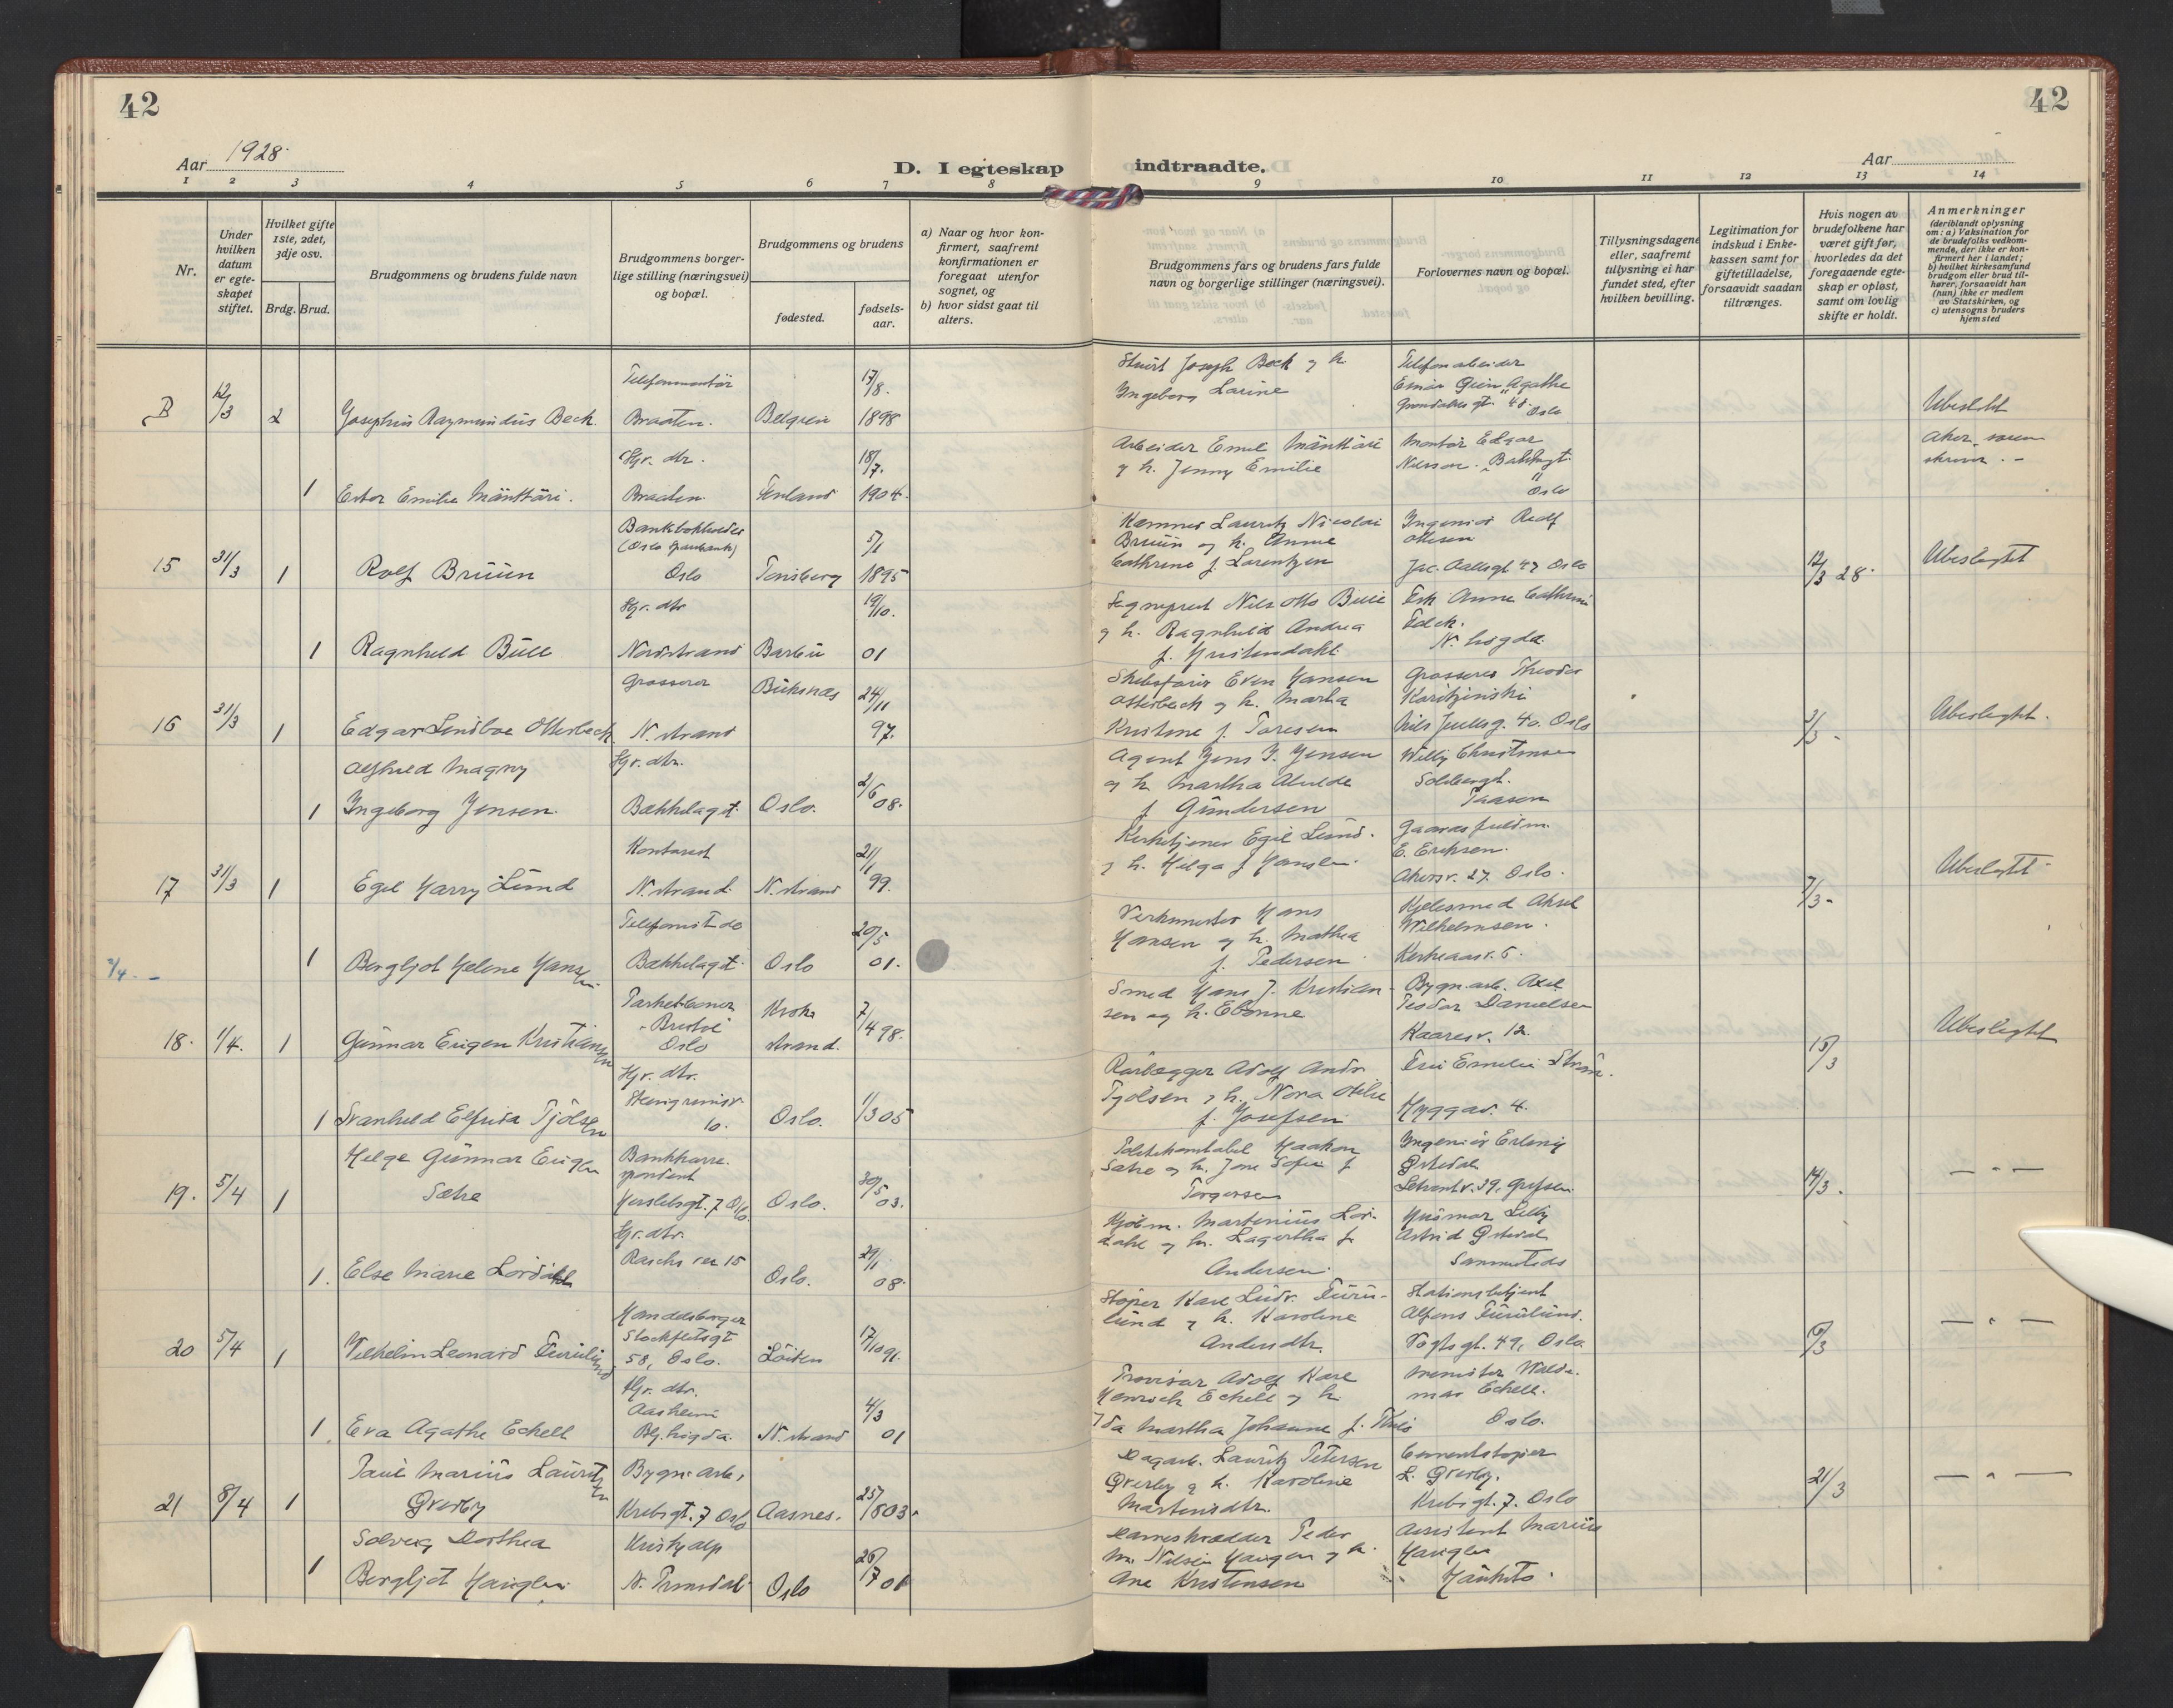 42
42
Aar 1928.
D. I egteskap indtraadte.
Aar
1 2 3 4 5 6 7 8 9 10 11 12 13 14
Nr.
Under hvilken datum er egteskapet stiftet.
Hvilket gifte 1ste, 2det, 3dje osv.
Brdg. Brud.
Brudgommens og brudens fulde navn
Brudgommens borgerlige stilling (næringsvei) og bopæl.
Brudgommens og brudens
fødested.
fødselsaar.
a) Naar og hvor konfirmert, saafremt konfirmationen er foregaat utenfor sognet, og
b) hvor sidst gaat til alters.
Brudgommens fars og brudens fars fulde navn og borgerlige stillinger (næringsvei).
Forlovernes navn og bopæl.
Tillysningsdagene eller, saafremt tillysning ei har fundet sted, efter hvilken bevilling.
Legitimation for indskud i Enkekassen samt for giftetilladelse, forsaavidt saadan tiltrænges.
Hvis nogen av brudefolkene har været gift før, hvorledes da det foregaaende egteskap er opløst, samt om lovlig skifte er holdt.
Anmerkninger
(deriblandt oplysning om: a) Vaksination for de brudefolks vedkommende, der ikke er konfirmert her i landet; b) hvilket kirkesamfund brudgom eller brud tilhører, forsaavidt han (hun) ikke er medlem av Statskirken, og c) utensogns bruders hjemsted
B 12/3 2 Josephus Raymundus Beck. Telefonmontør Braaten. Belgien 17/8. 1898
Stuart Joseph Beck og h. Ingeborg Larine
Telefonarbeider Einar Agathe Grøndahls gt. 48. Oslo
Ubeslektet
1 Ester Emilie Mänttäri. Hjr. dtr. Braaten. Finland 18/7. 1904.
Arbeider Emil Mänttäri og h. Jenny Emilie
Montør Edgar Oslo
Aker soren skriver. -
15 31/3 1 Rolf Bruun Bankbokholder (Oslo Sparebank) Oslo Tønsberg 5/1 1895
Kemner Lauritz Nicolai Bruun og h. Anne Cathrine f. Lorentzen
Ingeniør Rolf Ottesen Jac. Aalls gt. 47 Oslo
12/3 28. Ubeslegtet
1 Ragnhild Bull Hjr. dtr Nordstrand Barbu 19/10. 01
Sogneprest Nils Otto Bull og h. Ragnhild Andrea
Frk Anne Cathrine N. høgda.
16 31/3 1 Edgar Lindboe Otterbech Grosserer N. strand Buksnæs 24/11 97.
Skibsfører Even Hansen Otterbech og h. Marha Kristine f. Toresen
Grosserer Theodor Nils Juelsg. 40. Oslo
3/3 - Ubeslegtet.
1 Alfhild Magny Ingeborg Jensen. Hjr. dtr. Bækkelaget. Oslo. 2/6 08.
Agent Jens J. Jensen og h. Martha Alvilde f. Gundersen
Willy Christensen Solbergt. Taasen
17 31/3 1 Egil Harry Lund Kontorist N. strand. N. strand 21/1 99.
Kirketjener Egil Lund. og h. Helga f Hansen.
Gaardsfuldm. E. Eriksen. Akersv. 27. Oslo.
7/3 - Ubeslegtet
1 Bergljot Helene Hansen. Telefonistde Bækkelaget. Oslo 20/5 01.
Verkmester Hans Hansen og h. Mathea f. Pedersen
Kjelesmed Aksel Wilhelmsen. Kirkeaasv. 5.
2/4. -
18. 1/4. 1 Gunnar Eugen Kristiansen Oslo Krokstrand. 7/4 98.
Smed Hans J. Kristiansen og h. Ebonne
Bygn. arb. Axel Teodor Danielsen Kaaresv. 12.
15/3 Ubeslegtet
1 Svanhild Elfrida Tjølsen Hjr. dtr. Steingrimsv. 10. Oslo. 1/3 05
Rørlegger Adolf Andr. Tjølsen og h. Nora Otelie f. Josefsen
Fru Emilie Strøm. Hyggav. 4.
19. 5/4 1 Helge Gunnar Eugen Sætre Bankkorrespondent Herslebsgt. 7 Oslo. Oslo. 30/5 03.
Politikonstabel Haakon Sætre og h. Jone Sofie f Torgersen
Ingeniør Erling Østedal Grefsen
14/3. — " —
1. Else Marie Lørdahl Hjr. dtr. Raschs vei 15 Oslo. 29/1 08.
Kjøbm. Martinius Lørdahl og h. Lagertha f Andersen.
Husmor Lilly Astrid Østedal Sammesteds
20 5/4 1 Vilhelm Leonard Furulund Handelsborger Stockfletsgt 58, Oslo. Løiten 17/10 91.
Støper Karl Ludv. Furulund og h. Karoline Andersdtr.
Stationsbetjent Alfons Furulund. Vogts gt. 49, Oslo.
6/3 — " —
1. Eva Agathe Echell Hjr. dtr. Aasheim Blg. høgda. N. strand 4/3 01
Provisor Adolf Karl Henrich Echell og h Ida Martha Johanne f. Thiis
Waldemar Echell. Oslo.
21 8/4 1 Paul Marius Lauritzen Øverby Bygn. arb. Krebsgt. 7 Oslo Aasnes. 25/1 803.
Dagarb. Lauritz Petersen Øverby og h. Karoline Martinsdtr.
Cementstøper L. Øverby. Krebs gt. 7. Oslo
21/3 — " —
1 Solveig Dorthea Bergljot Haugen. N. Oslo 26/7 01
Dameskrædder Peder M. Nilsen Haugen og h. Ane Kristensen
Assistent Marius Haugen